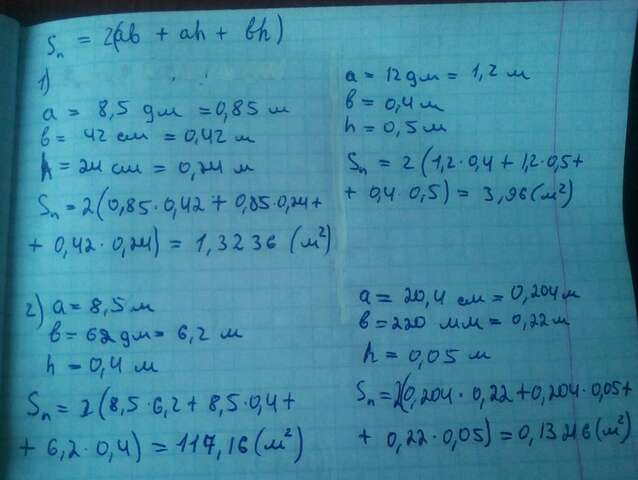 Sₙ = 2(ab + ah + bh)
1)
a = 8,5 дм = 0,85 м
b = 42 см = 0,42 м
h = 24 см = 0,24 м
Sₙ = 2(0,85·0,42 + 0,85·0,24 +
+ 0,42·0,24) = 1,3236 (м²)
a = 12 дм = 1,2 м
b = 0,4 м
h = 0,5 м
Sₙ = 2(1,2·0,4 + 1,2·0,5 +
+ 0,4·0,5) = 3,96 (м²)
2) a = 8,5 м
b = 62 дм = 6,2 м
h = 0,4 м
Sₙ = 2(8,5·6,2 + 8,5·0,4 +
+ 6,2·0,4) = 117,16 (м²)
a = 20,4 см = 0,204 м
b = 220 мм = 0,22 м
h = 0,05 м
Sₙ = 2(0,204·0,22 + 0,204·0,05 +
+ 0,22·0,05) = 0,13216 (м²)